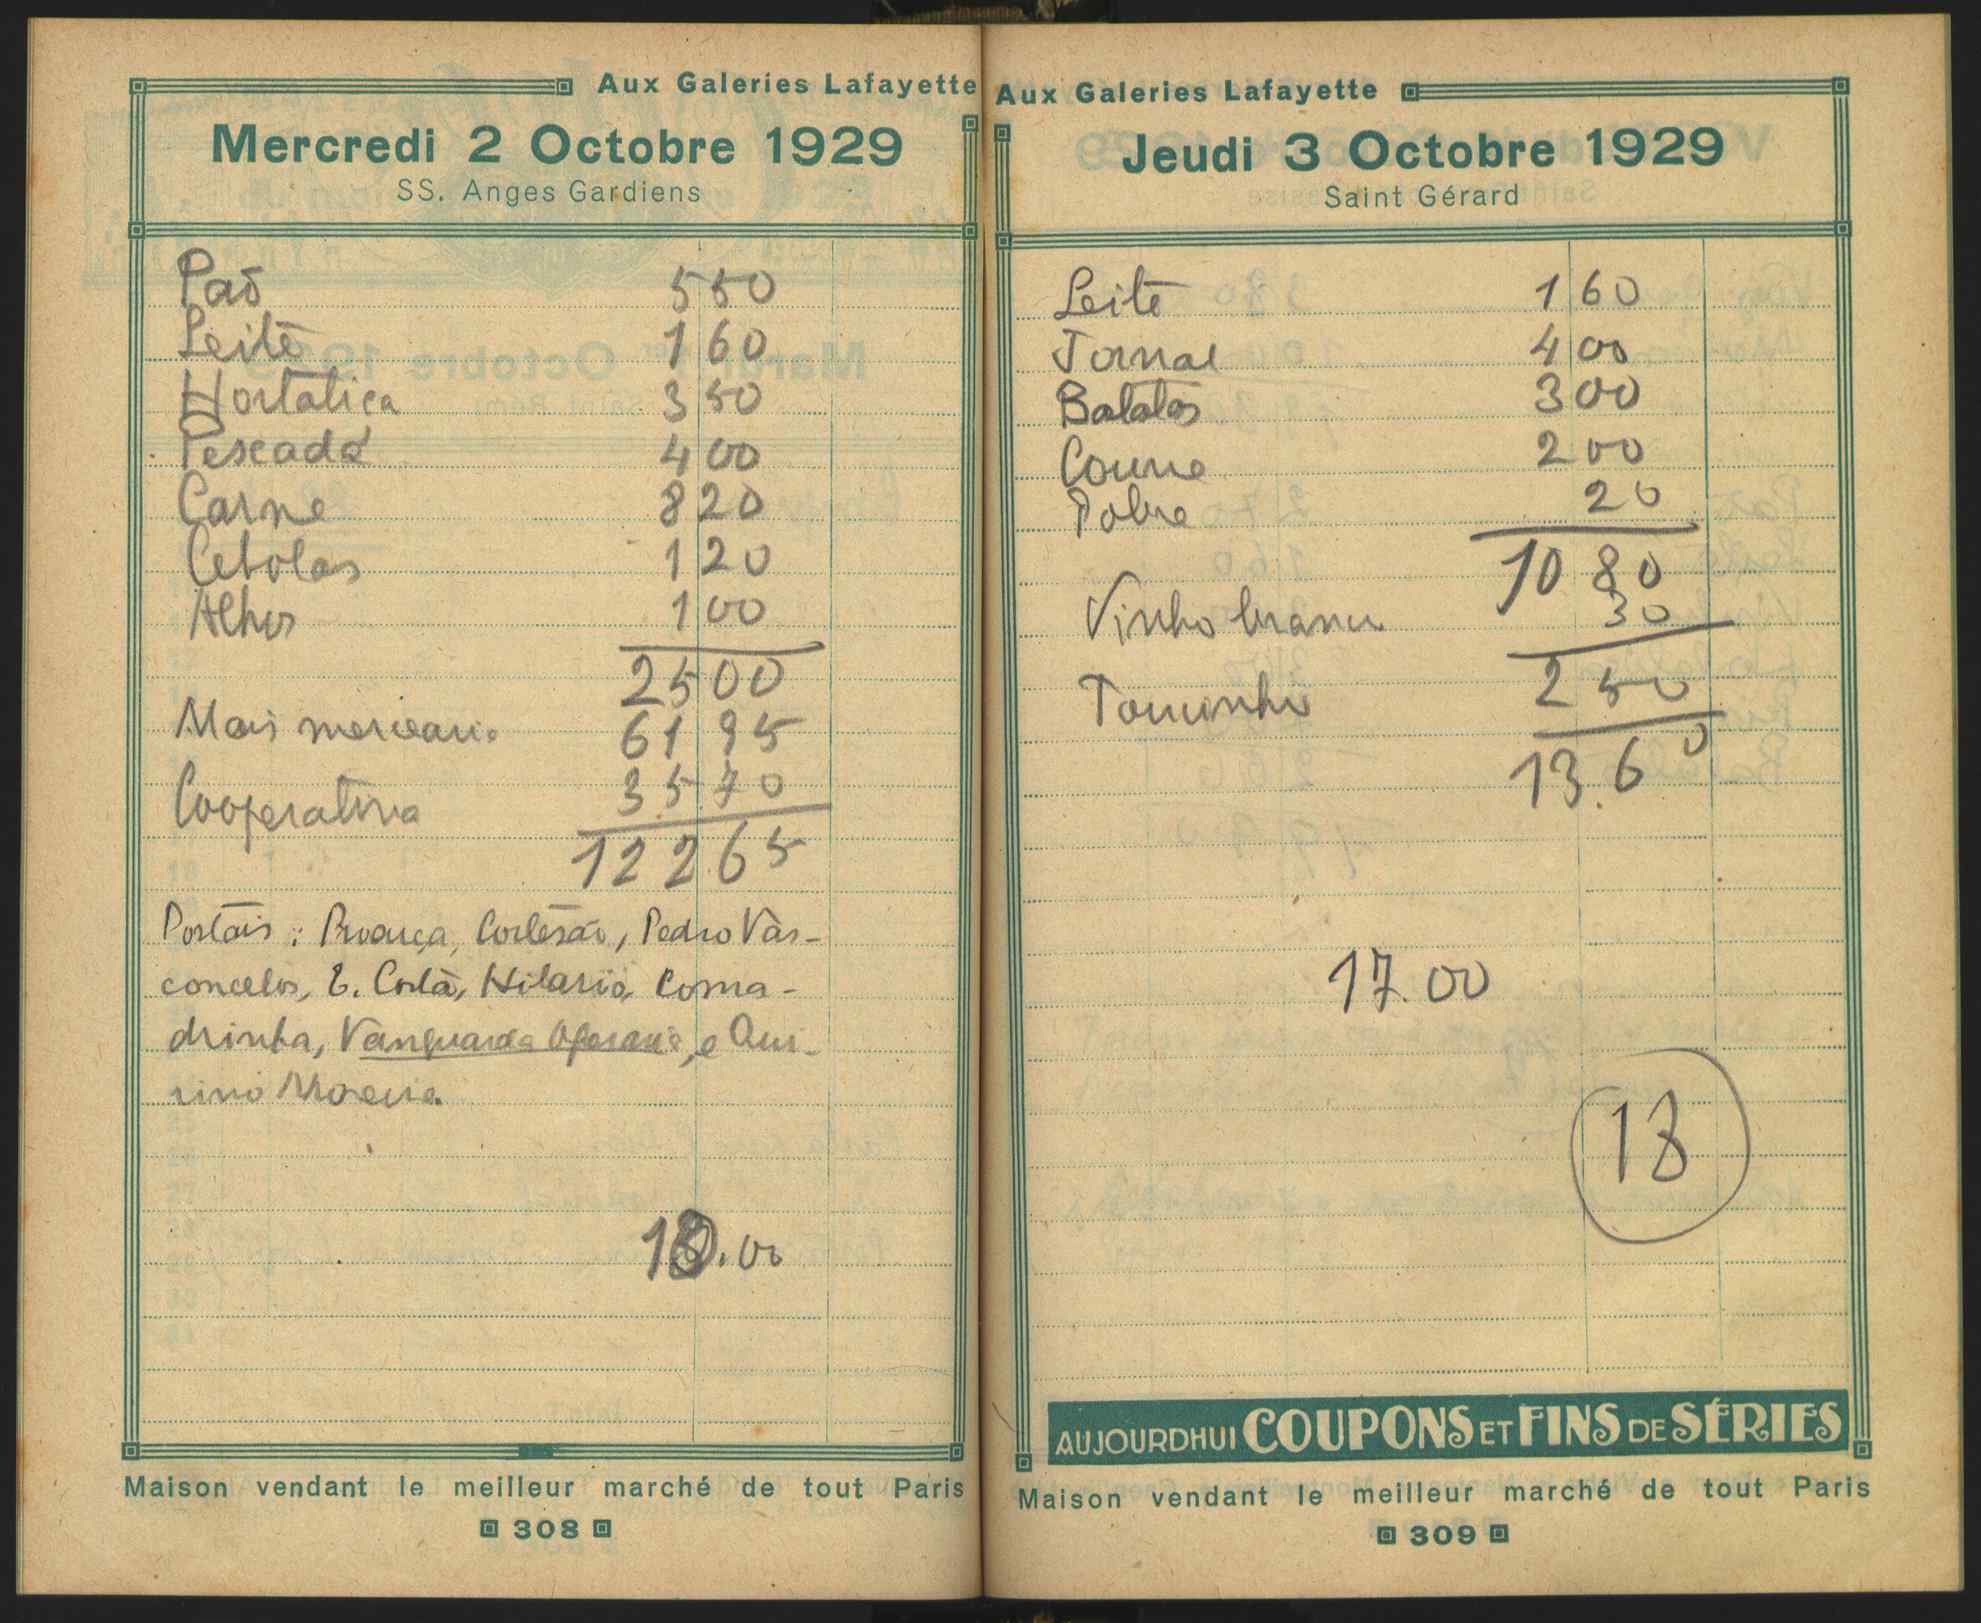 Aux Galeries Lafayette
Mercredi 2 Octobre 1929
SS. Anges Gardiens
Pão 5 50
Leite 1 60
Hortaliça 3 50
Pescada 4 00
Carne 8 20
Cebolas 1 20
Alhos 1 00
25 00
Mais mercearia 61 95
Cooperativa 35.70
122.65
Postais: Proença, Cortesão, Pedro Vas-
concelos, E. Costa, Hilario, Coma-
drinha, Vanguarda Operaria, e Qui-
rino Moreira.
.00
Maison vendant le meilleur marché de tout Paris
308
Aux Galeries Lafayette
Jeudi 3 Octobre 1929
Saint Gérard
Leite 1 60
Jornal 4 00
Batatas 3 00
Couve 2 00
Pobre 20
10 80
Vinho branco 30
Toucinho 2 50
13.60
17.00
18
AUJOURDHUI COUPONS ET FINS DE SÉRIES
Maison vendant le meilleur marché de tout Paris
309